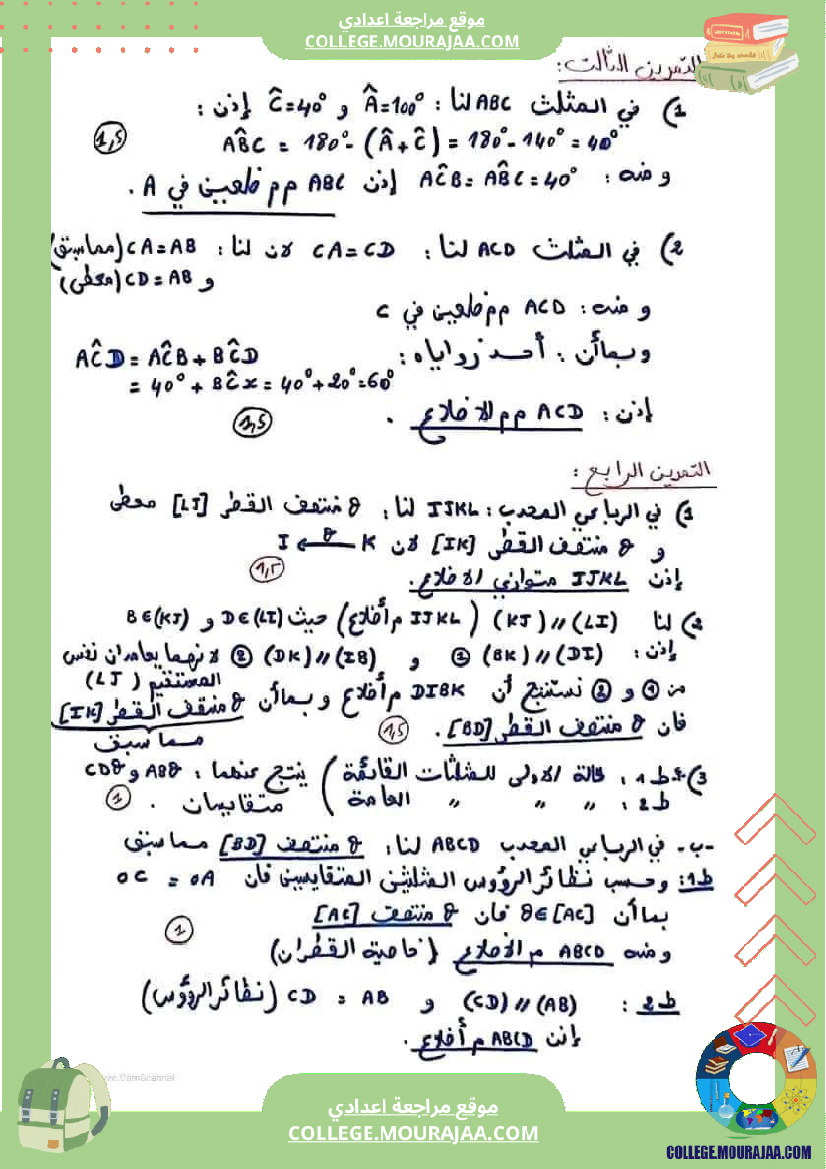 موقع مراجعة اعدادي
COLLEGE.MOURAJAA.COM
التمرين الثالث:
1) في المثلث ABC لنا: Â=100° و Ĉ=40° إذن:
AB̂C = 180° - (Â+Ĉ) = 180° - 140° = 40°
1,5
ومنه: AĈB = AB̂C = 40° إذن ABC مم ضلعين في A.
2) في المثلث ACD لنا: CA=CD لان لنا: CA=AB (مماسبق)
و CD=AB (معطى)
ومنه: ACD مم ضلعين في C
وبما أن: أحد زواياه: AĈD = AĈB + BĈD
= 40° + BĈx = 40° + 20° = 60°
إذن: ACD مم الاضلاع.
1,5
التمرين الرابع:
1) في الرباعي المحدب: IJKL لنا: θ منتصف القطر [LJ] معطى
و θ منتصف القطر [IK] لان K θ I
1,5
إذن IJKL متوازي الاضلاع.
2) لنا (LI) // (KJ) (IJKL م أضلاع) حيث D∈(LI) و B∈(KJ)
إذن: (DI) // (BK) ① و (IB) // (DK) ② لانهما يعامدان نفس
المستقيم (LJ)
من ① و ② نستنتج أن DIBK م أضلاع وبما أن θ منتصف القطر [IK]
مما سبق
فان θ منتصف القطر [BD].
1,5
3) ط1: حالة الاولى للمثلثات القائمة ) ينتج عنهما: ABθ و CDθ
ط2: " " " العامة ) متقايسان.
1
-ب- في الرباعي المحدب ABCD لنا: θ منتصف [BD] مما سبق
ط1: وحسب نظائر الرؤوس المثلثين المتقايسين فان OC = OA
بما أن θ∈[AC] فان θ منتصف [AC]
1
ومنه ABCD م الأضلاع (خاصية القطران)
ط2: (AB) // (CD) و CD = AB (نظائر الرؤوس)
إذن ABCD م أضلاع.
موقع مراجعة اعدادي
COLLEGE.MOURAJAA.COM
COLLEGE.MOURAJAA.COM